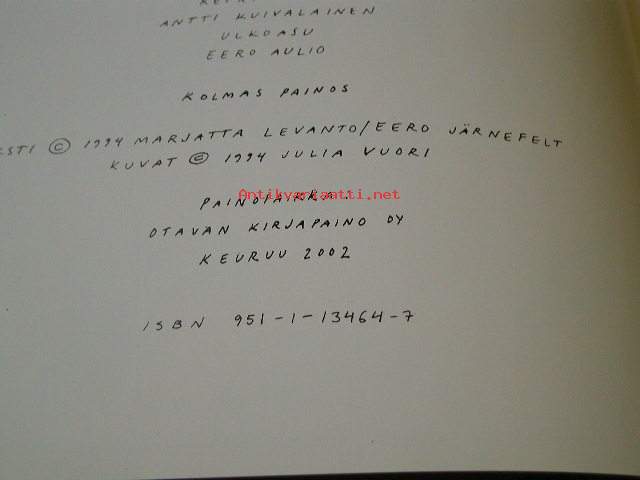 ANTTI KUIVALAINEN
ULKOASU
EERO AULIO
KOLMAS PAINOS
© 1994 MARJATTA LEVANTO/EERO JÄRNEFELT
KUVAT © 1994 JULIA VUORI
PAINOPAIKKA:
Antikvariaatti.net
OTAVAN KIRJAPAINO OY
KEURUU 2002
ISBN 951-1-13464-7